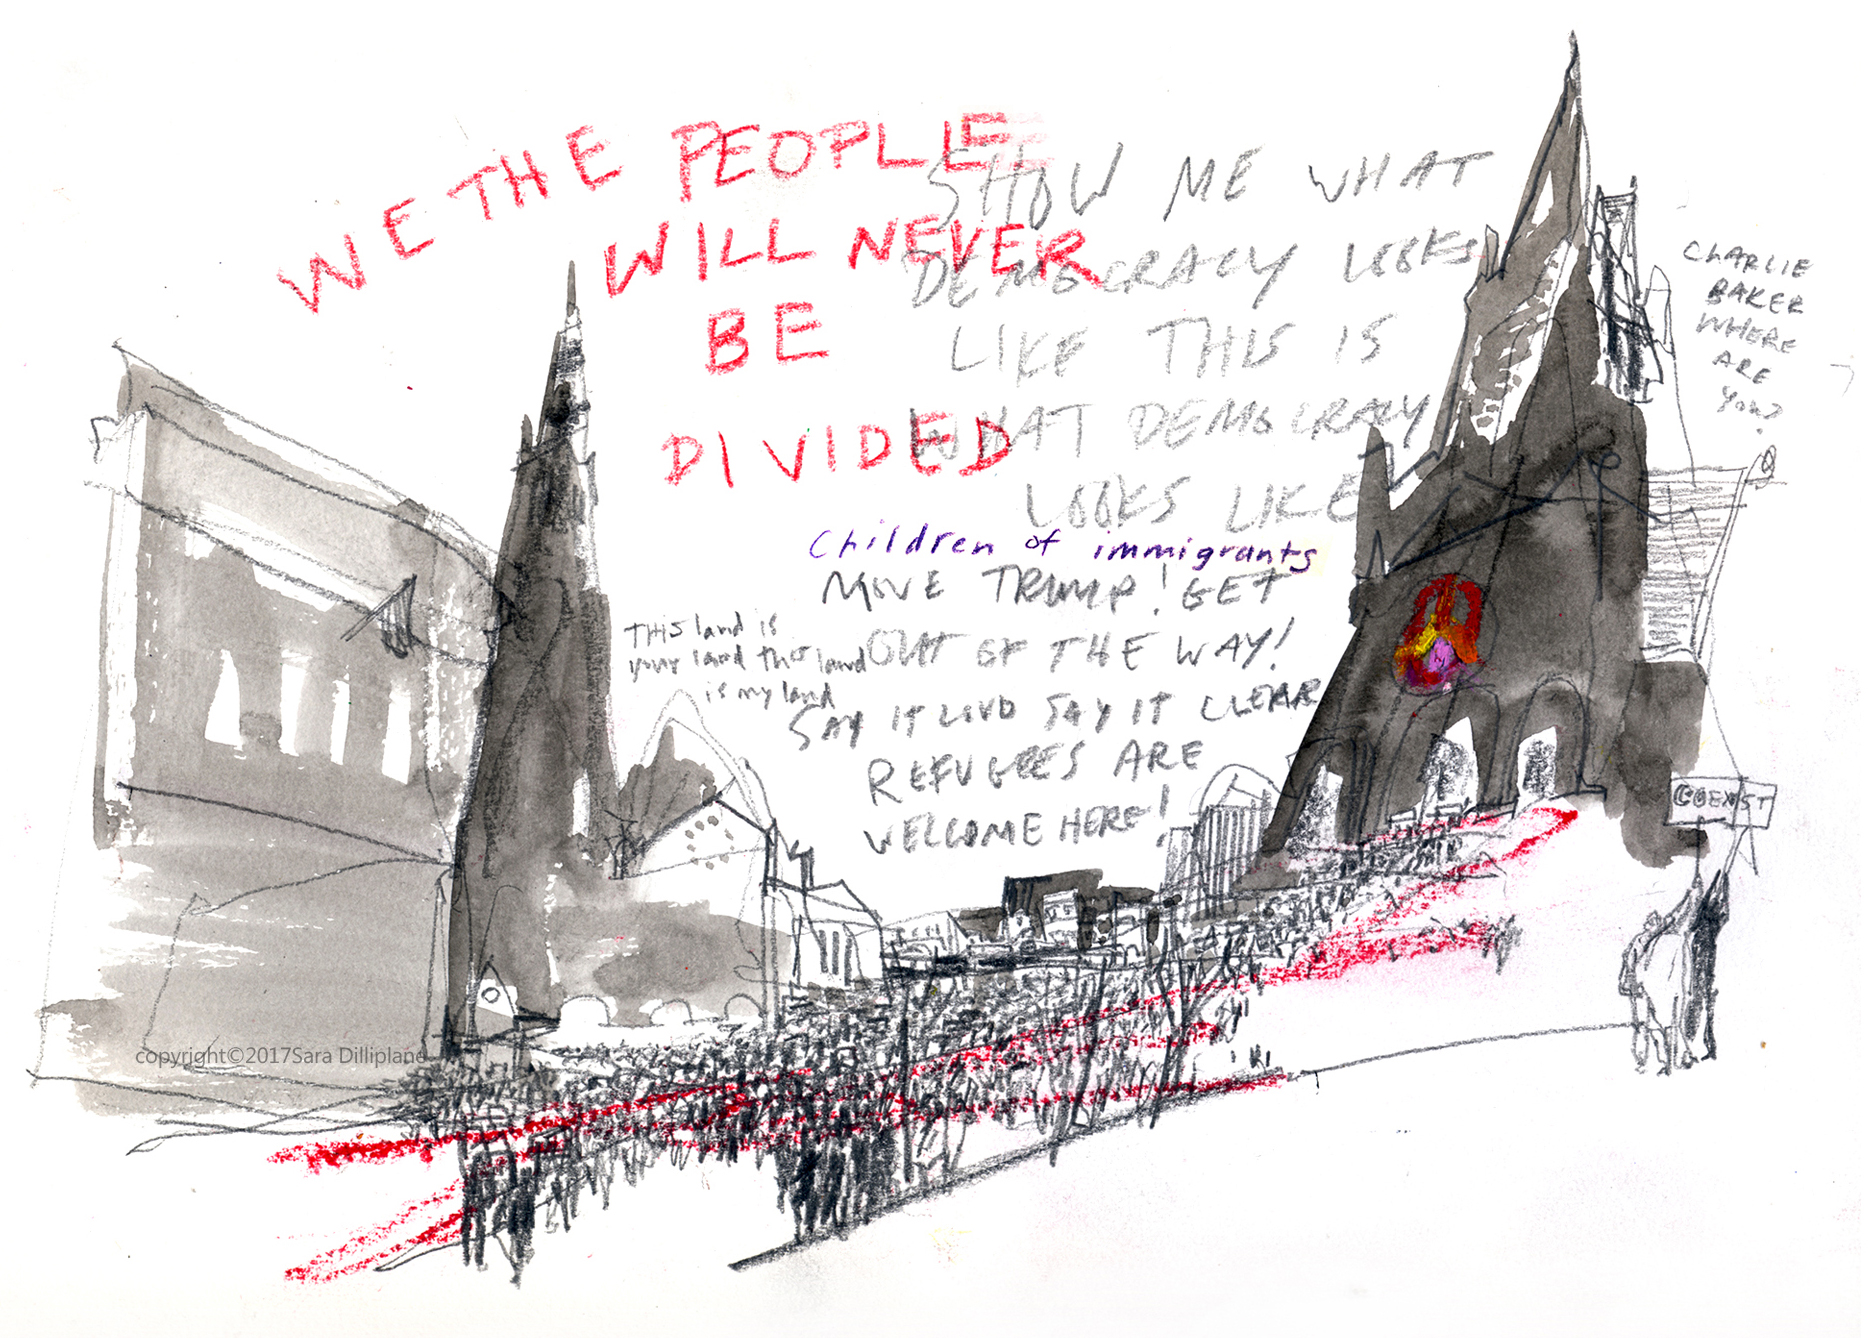 WE THE PEOPLE
WILL NEVER
BE
DIVIDED
SHOW ME WHAT
DEMOCRACY LOOKS
LIKE THIS IS
WHAT DEMOCRACY
LOOKS LIKE
CHARLIE
BAKER
WHERE
ARE
YOU?
Children of immigrants
MOVE TRUMP! GET
OUT OF THE WAY!
THIS land is
your land this land
is my land
SAY IT LOUD SAY IT CLEAR
REFUGEES ARE
WELCOME HERE!
COEXIST
copyright©2017Sara Dilliplane